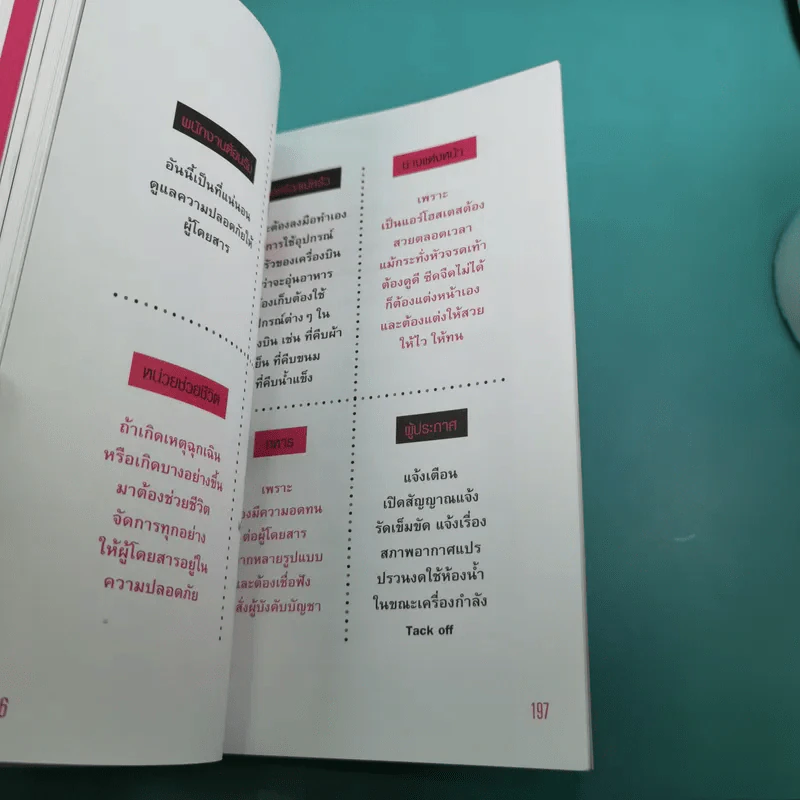 พนักงานต้อนรับ
อันนี้เป็นที่แน่นอน
ดูแลความปลอดภัยให้
ผู้โดยสาร
หน่วยช่วยชีวิต
ถ้าเกิดเหตุฉุกเฉิน
หรือเกิดบางอย่างขึ้น
มาต้องช่วยชีวิต
จัดการทุกอย่าง
ให้ผู้โดยสารอยู่ใน
ความปลอดภัย
6
ะต้องลงมือทำเอง
การใช้อุปกรณ์
รัวของเครื่องบิน
ว่าจะอุ่นอาหาร
องเก็บต้องใช้
ปกรณ์ต่าง ๆ ใน
งบิน เช่น ที่คีบผ้า
ย็น ที่คีบขนม
ที่คีบน้ำแข็ง
ช่างแต่งหน้า
เพราะ
เป็นแอร์โฮสเตสต้อง
สวยตลอดเวลา
แม้กระทั่งหัวจรดเท้า
ต้องดูดี ซีดจืดไม่ได้
ก็ต้องแต่งหน้าเอง
และต้องแต่งให้สวย
ให้ไว ให้ทน
ทหาร
เพราะ
องมีความอดทน
ต่อผู้โดยสาร
ากหลายรูปแบบ
และต้องเชื่อฟัง
สั่งผู้บังคับบัญชา
ผู้ประกาศ
แจ้งเตือน
เปิดสัญญาณแจ้ง
รัดเข็มขัด แจ้งเรื่อง
สภาพอากาศแปร
ปรวนงดใช้ห้องน้ำ
ในขณะเครื่องกำลัง
Tack off
197